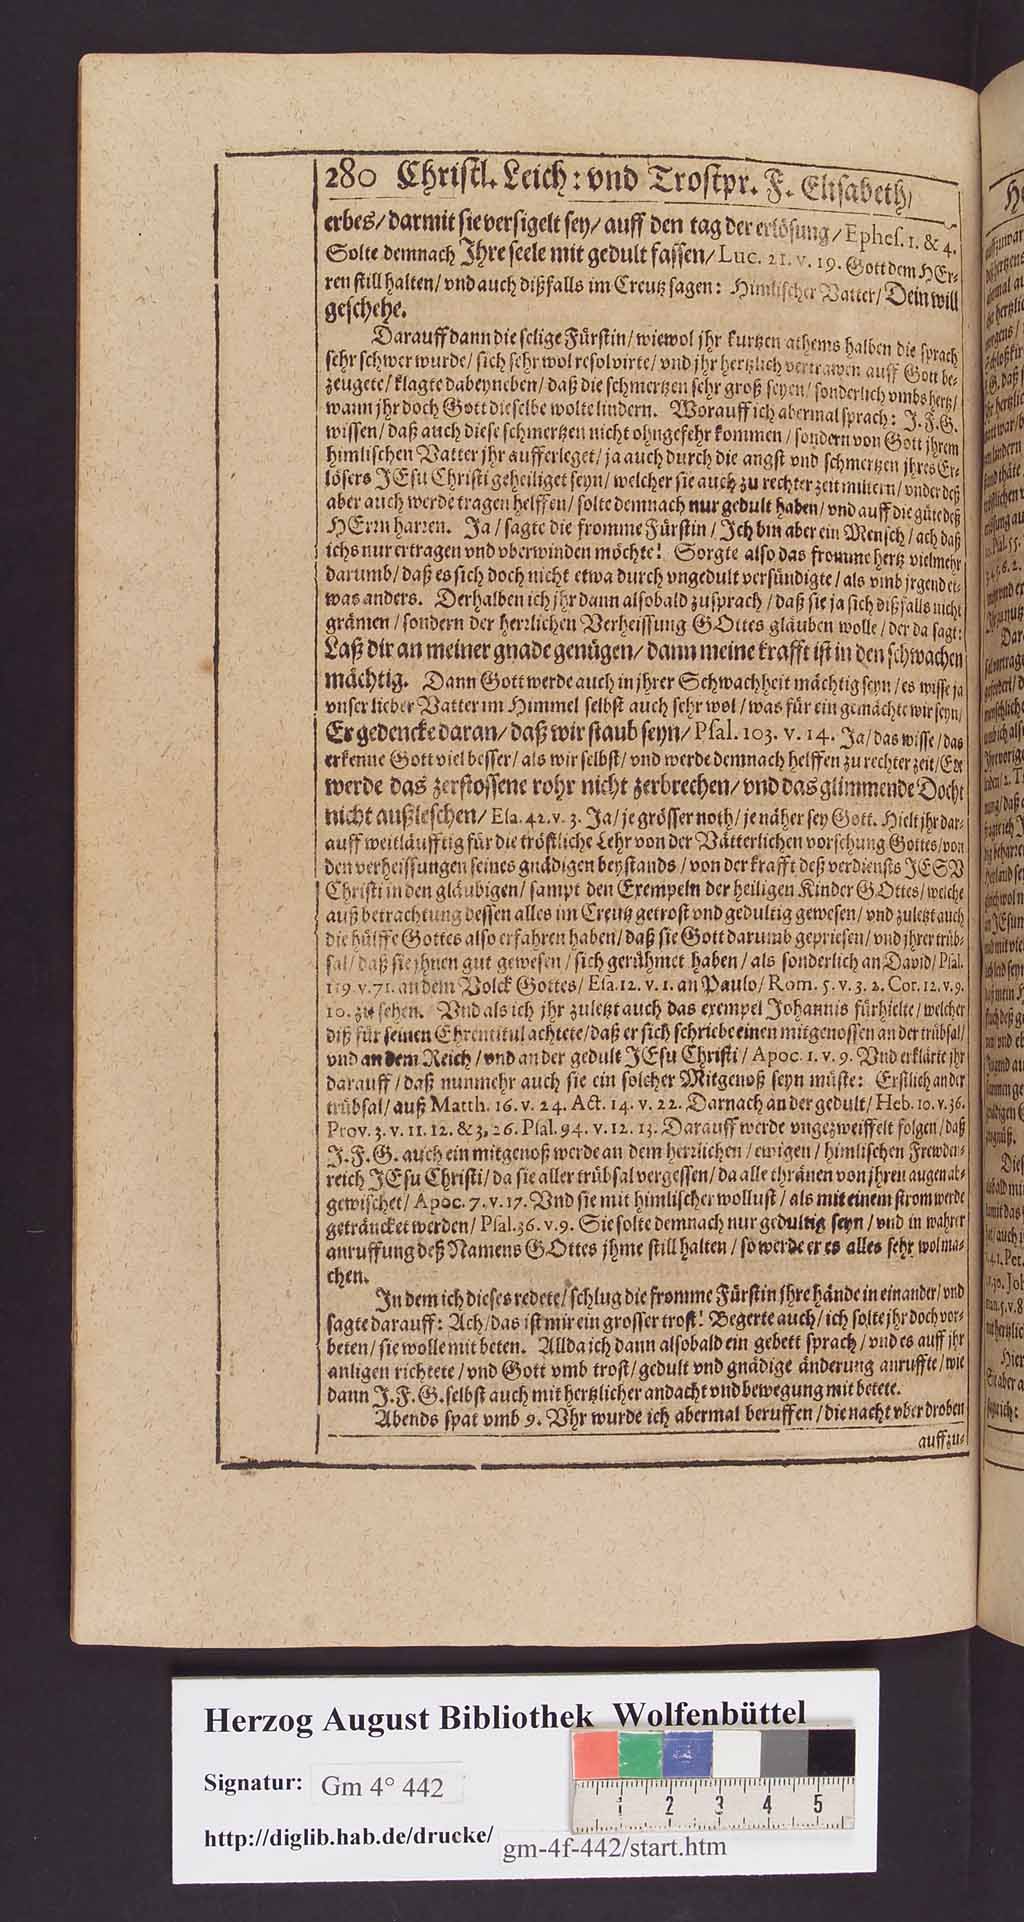 280 Christl. Leich: vnd Trostpr. F. Elisabeth/
erbes/ darmit sie versigelt sey/ auff den tag der erlösung/ Ephes. 1. & 4.
Solte demnach Ihre seele mit gedult fassen/ Luc. 21. v. 19. Gott dem HEr-
ren still halten/ vnd auch dißfalls im Creutz sagen: Himlischer Vatter/ Dein will
geschehe.
Darauff dann die selige Fürstin/ wiewol jhr kurtzen athems halben die sprach
sehr schwer wurde/ sich sehr wol resolvirte/ vnd jhr hertzlich vertrawen auff Gott be-
zeugete/ klagte dabeyneben/ daß die schmertzen sehr groß seyen/ sonderlich vmbs hertz/
wann jhr doch Gott dieselbe wolte lindern. Worauff ich abermal sprach: J. F. G.
wissen/ daß auch diese schmertzen nicht ohngefehr kommen/ sondern von Gott jhrem
himlischen Vatter jhr aufferleget/ ja auch durch die angst vnd schmertzen jhres Er-
lösers JEsu Christi geheiliget seyn/ welcher sie auch zu rechter zeit miltern/ vnder deß
aber auch werde tragen helffen/ solte demnach nur gedult haben/ vnd auff die güte deß
HErrn harren. Ja/ sagte die fromme Fürstin/ Ich bin aber ein Mensch/ ach daß
ichs nur ertragen vnd vberwinden möchte! Sorgte also das fromme hertz vielmehr
darumb/ daß es sich doch nicht etwa durch vngedult versündigte/ als vmb jrgend et-
was anders. Derhalben ich jhr dann alsobald zusprach/ daß sie ja sich dißfalls nicht
grämen/ sondern der herrlichen Verheissung GOttes gläuben wolle/ der da sagt:
Laß dir an meiner gnade genügen/ dann meine krafft ist in den schwachen
mächtig. Dann Gott werde auch in jhrer Schwachheit mächtig seyn/ es wisse ja
vnser lieber Vatter im Himmel selbst auch sehr wol/ was für ein gemächte wir seyn/
Er gedencke daran/ daß wir staub seyn/ Psal. 103. v. 14. Ja/ das wisse/ das
erkenne Gott viel besser/ als wir selbst/ vnd werde demnach helffen zu rechter zeit/ Er
werde das zerstossene rohr nicht zerbrechen/ vnd das glimmende Docht
nicht außleschen/ Esa. 42. v. 3. Ja/ je grösser noth/ je näher sey Gott. Hielt jhr dar-
auff weitläufftig für die tröstliche Lehr von der Vätterlichen vorsehung Gottes/ von
den verheissungen seines gnädigen beystands/ von der krafft deß verdiensts JESV
Christi in den gläubigen/ sampt den Exempeln der heiligen Kinder GOttes/ welche
auß betrachtung dessen alles im Creutz getrost vnd gedultig gewesen/ vnd zuletzt auch
die hülffe Gottes also erfahren haben/ daß sie Gott darumb gepriesen/ vnd jhrer trüb-
sal/ daß sie jhnen gut gewesen/ sich gerühmet haben/ als sonderlich an David/ Psal.
119. v. 71. an dem Volck Gottes/ Esa. 12. v. 1. an Paulo/ Rom. 5. v. 3. 2. Cor. 12. v. 9.
10. zu sehen. Vnd als ich jhr zuletzt auch das exempel Johannis fürhielte/ welcher
diß für seinen Ehrentitul achtete/ daß er sich schriebe einen mitgenossen an der trübsal/
vnd an dem Reich/ vnd an der gedult JEsu Christi/ Apoc. 1. v. 9. Vnd erklärte jhr
darauff/ daß nunmehr auch sie ein solcher Mitgenoß seyn müste: Erstlich an der
trübsal/ auß Matth. 16. v. 24. Act. 14. v. 22. Darnach an der gedult/ Heb. 10. v. 36.
Prov. 3. v. 11. 12. & 3, 26. Psal. 94. v. 12. 13. Darauff werde vngezweiffelt folgen/ daß
J. F. G. auch ein mitgenoß werde an dem herrlichen/ ewigen/ himlischen Frewden-
reich JEsu Christi/ da sie aller trübsal vergessen/ da alle thränen von jhren augen ab-
gewischet/ Apoc. 7. v. 17. Vnd sie mit himlischer wollust/ als mit einem strom werde
geträncket werden/ Psal. 36. v. 9. Sie solte demnach nur gedultig seyn/ vnd in wahrer
anruffung deß Namens GOttes jhme still halten/ so werde er es alles sehr wol ma-
chen.
In dem ich dieses redete/ schlug die fromme Fürstin jhre hände in einander/ vnd
sagte darauff: Ach/ das ist mir ein grosser trost! Begerte auch/ ich solte jhr doch vor-
beten/ sie wolle mit beten. Allda ich dann alsobald ein gebett sprach/ vnd es auff jhr
anligen richtete/ vnd Gott vmb trost/ gedult vnd gnädige änderung anruffte/ wie
dann J. F. G. selbst auch mit hertzlicher andacht vnd bewegung mit betete.
Abends spat vmb 9. Vhr wurde ich abermal beruffen/ die nacht vber droben
auffzu-
Herzog August Bibliothek Wolfenbüttel
Signatur: Gm 4° 442
http://diglib.hab.de/drucke/ gm-4f-442/start.htm
1 2 3 4 5